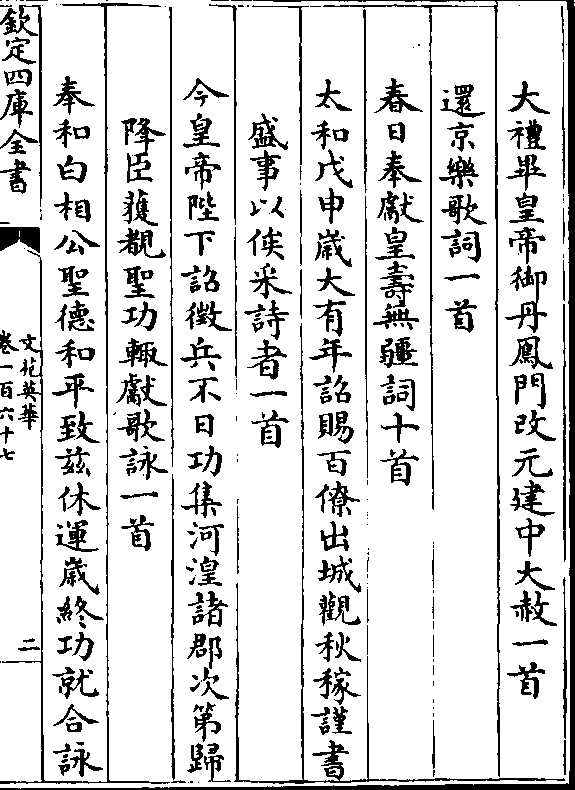 大禮畢皇帝御丹鳳門改元建中大赦一首
還京樂歌詞一首
春日奉獻皇壽無疆詞十首
太和戊申歲大有年詔賜百僚出城觀秋稼謹書
盛事以俟采詩者一首
今皇帝陛下詔徵兵不日功集河湟諸郡次第歸
降臣獲覩聖功輙獻歌詠一首
奉和白相公聖德和平致茲休運歲終功就合詠
欽定四庫全書
文苑英華
卷一百六十七
二